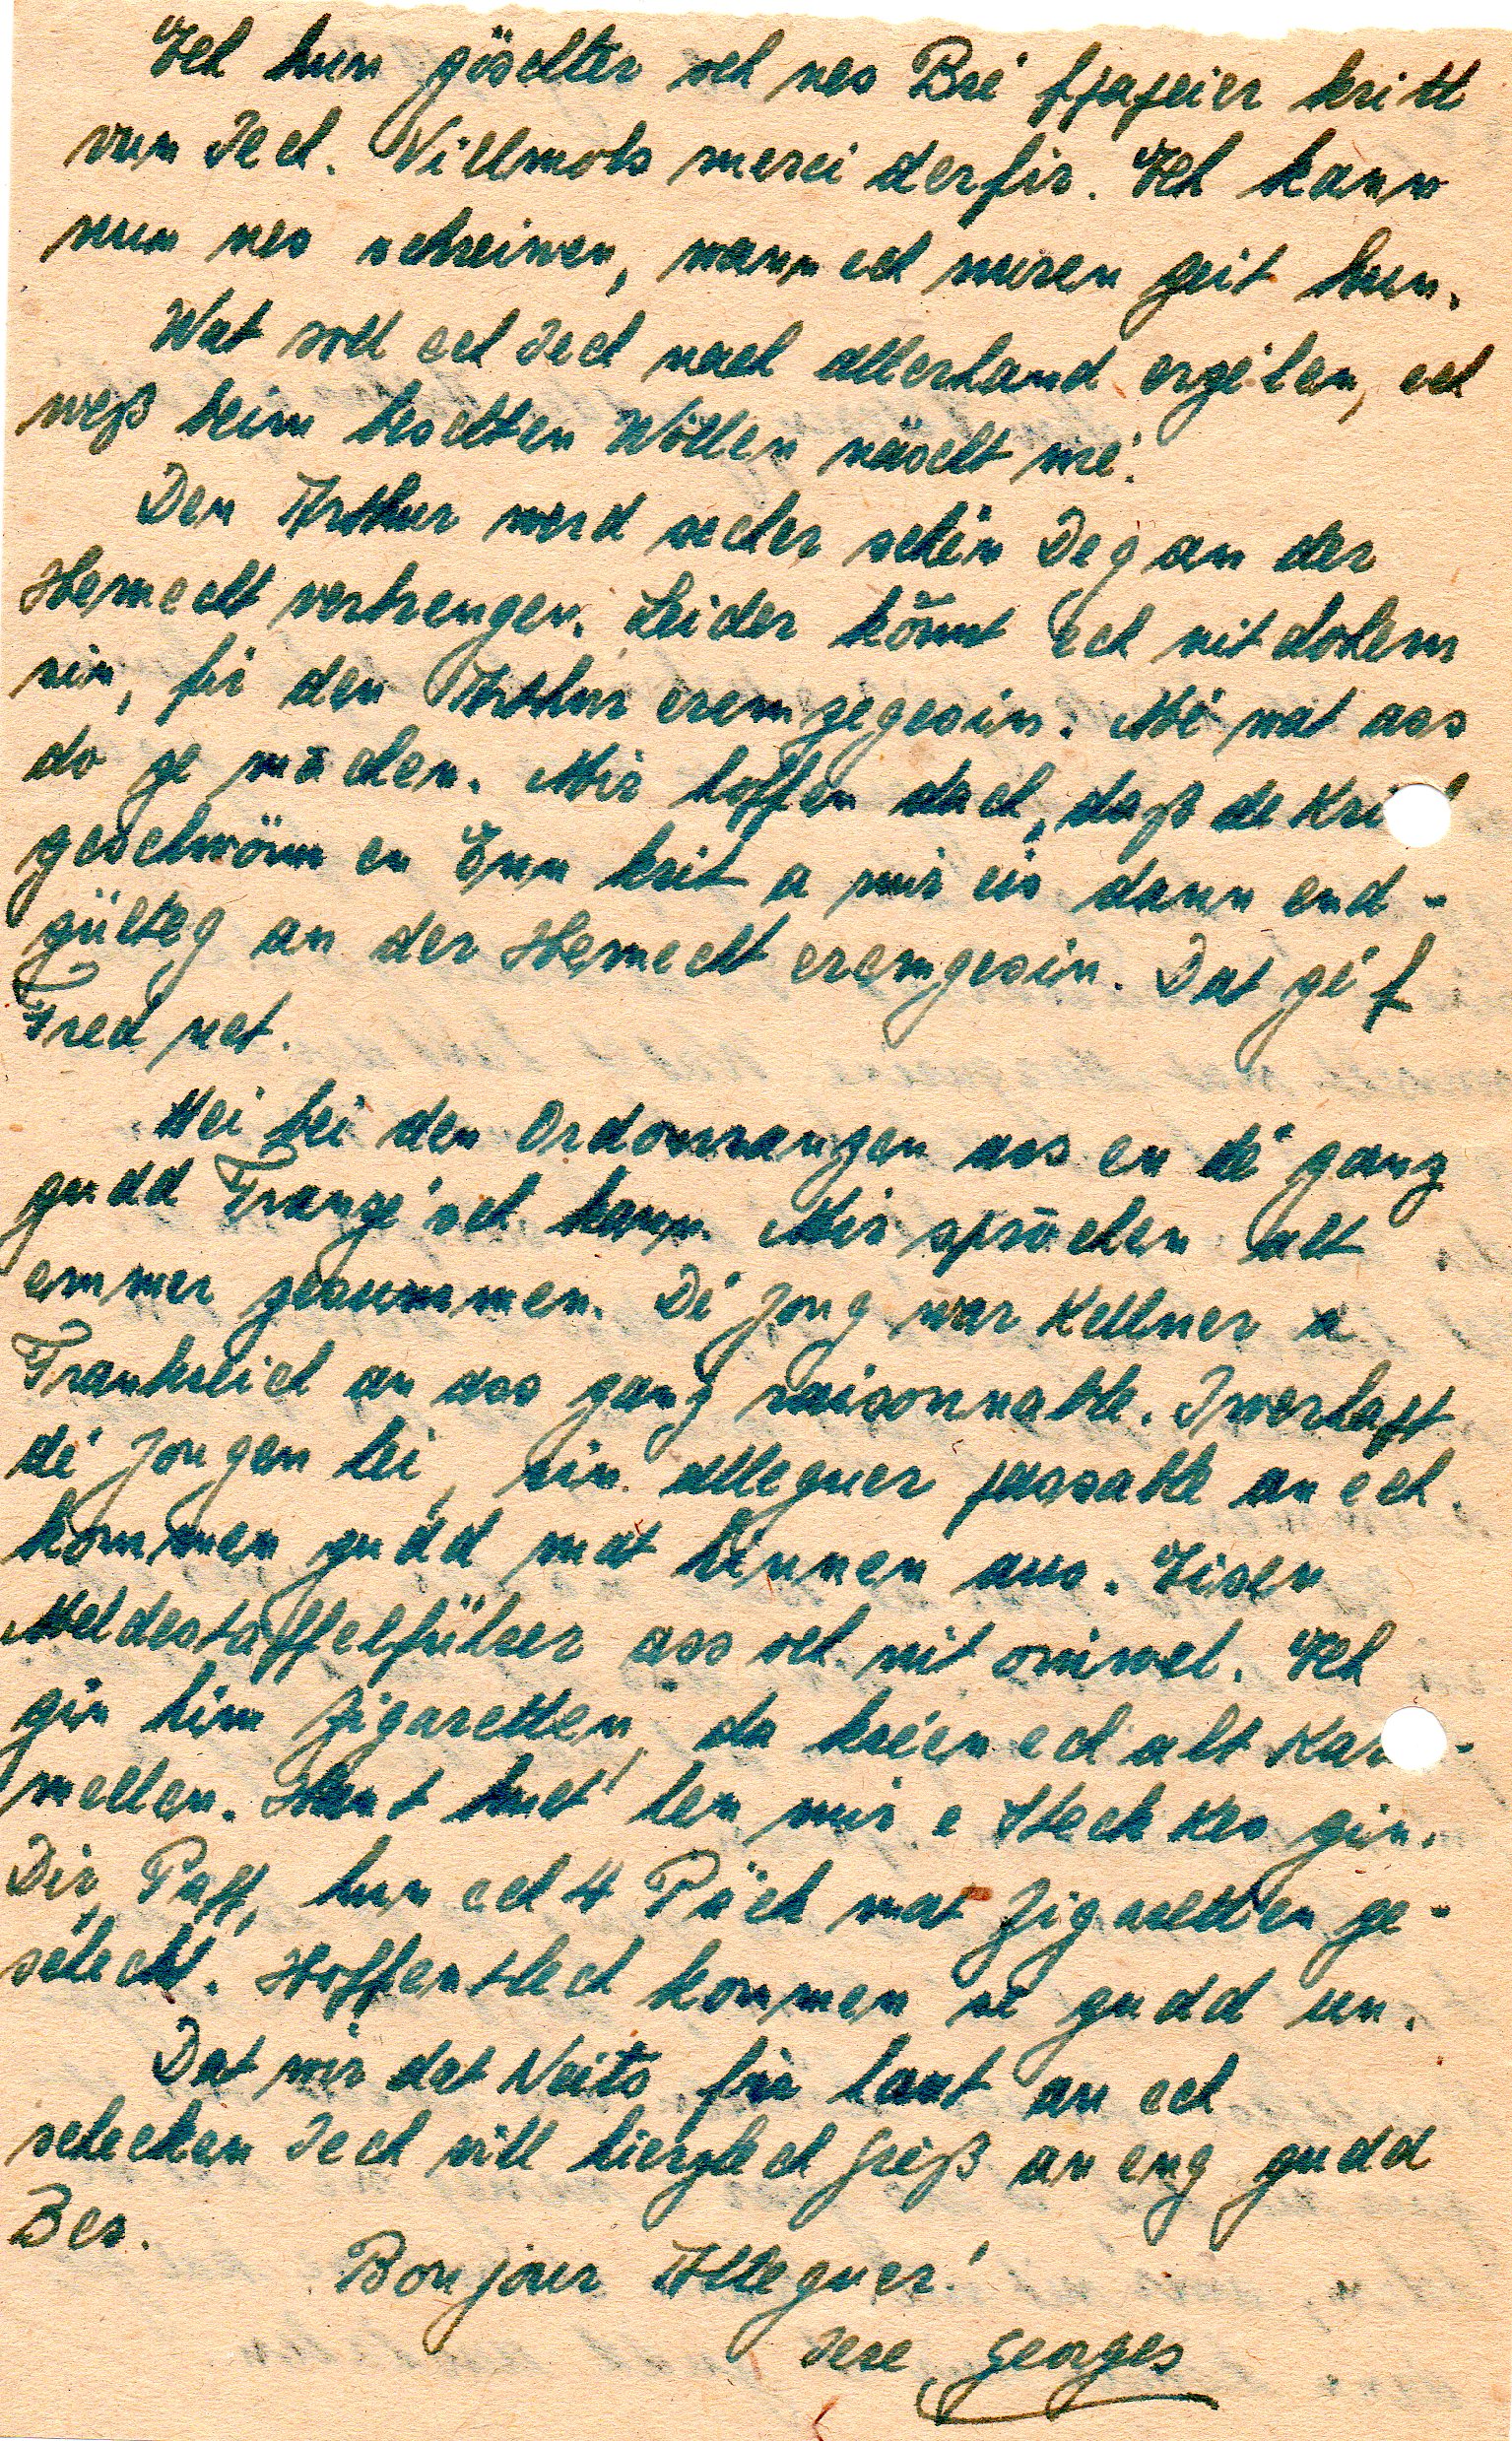 Ech hun göschter och nes Bréifpapeier kritt
vun Iech. Villmols merci derfir. Ech kann
nun nes schreiwen, wann ech nuren Zeit hun.
Wat soll ech Iech nach allerhand erzélen, ech
weß beim beschten Wöllen näscht mé.
Den Arthur werd secher schéin Deg an der
Hemecht verbrengen. Leider könnt ech nit dohem
sin, fir den Arthur erem zegesin. Mé wat ass
do ze māchen. Mir hoffen dach, daß de Kri
geschwönn en Enn krit a mir eis dann end-
gülteg an der Hemecht eremgesin. Dat géf
Fred net.
Hei bei den Ordonnanzen ass en dé ganz
gudd Franzéisch kann. Mir sprāchen alt
emmer zesummen. Dé Jong war Kellner a
Frankreich an ass ganz raisonnabel. Iwerhapt
dé Jongen hei, sin alleguer passabel an ech
kommen gudd mat hinnen aus. Eisen
Meldestaffelführer ass och nit oniwel. Ech
gin him Zigaretten, da kréien ech alt Kar-
mellen. Haut huet hen mir e Steck Kes gin.
Dir, Papp, hun ech 4 Päck mat Zigaretten ge-
scheckt. Hoffentlech kommen se gudd un.
Dat wir dat Neits fir haut an ech
schecken Iech vill hierzlech Gréiß an eng gudd
Bes.
Bonjour Alleguer!
Iere Georges